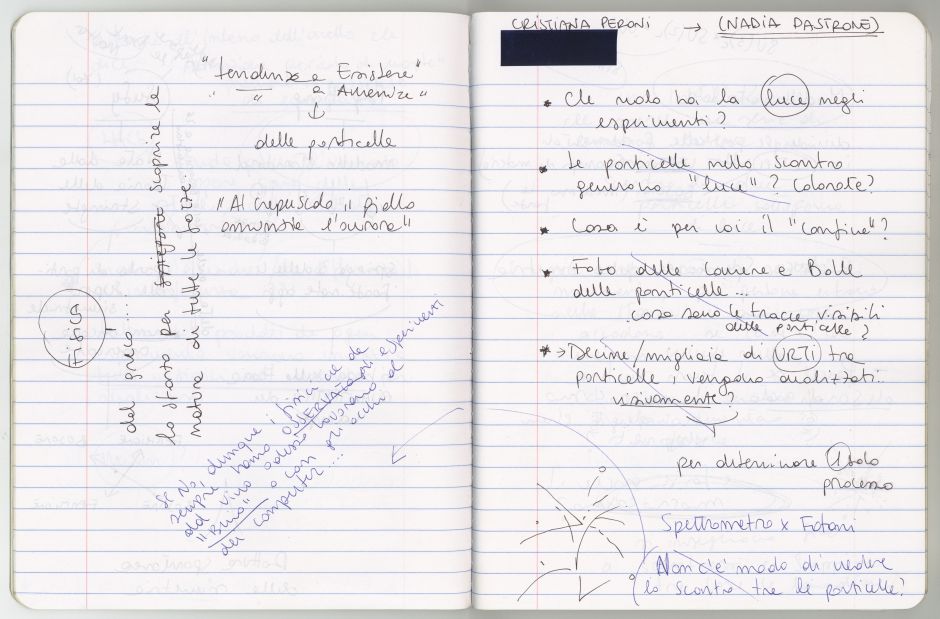 "tendenze a Esistere"
" " a Avvenire"
↓
delle particelle
"Al crepuscolo il giallo
annunzia l'aurora"
FISICA
dal greco....
lo sforzo per scoprire la
natura di tutte le forze
Se No, dunque, i fisici che da
sempre hanno OSSERVATO gli esperimenti
dal vivo adesso lavorano al
"Buio" o con gli occhi
dei computer....
CRISTIANA PERONI → (NADIA PASTRONE)
* Che ruolo ha la luce negli
esperimenti?
* Le particelle nello scontro
generano "luce"? Colorate?
* Cosa è per voi il "confine"?
* Foto delle Camere a Bolle
delle particelle...
cosa sono le tracce visibili
delle particelle?
* → Decine/migliaia di URTI tra
particelle, vengono analizzati
visivamente?
per determinare 1 solo
processo
Spettrometro x Fotoni
Non c'è modo di vedere
lo scontro tra le particelle?